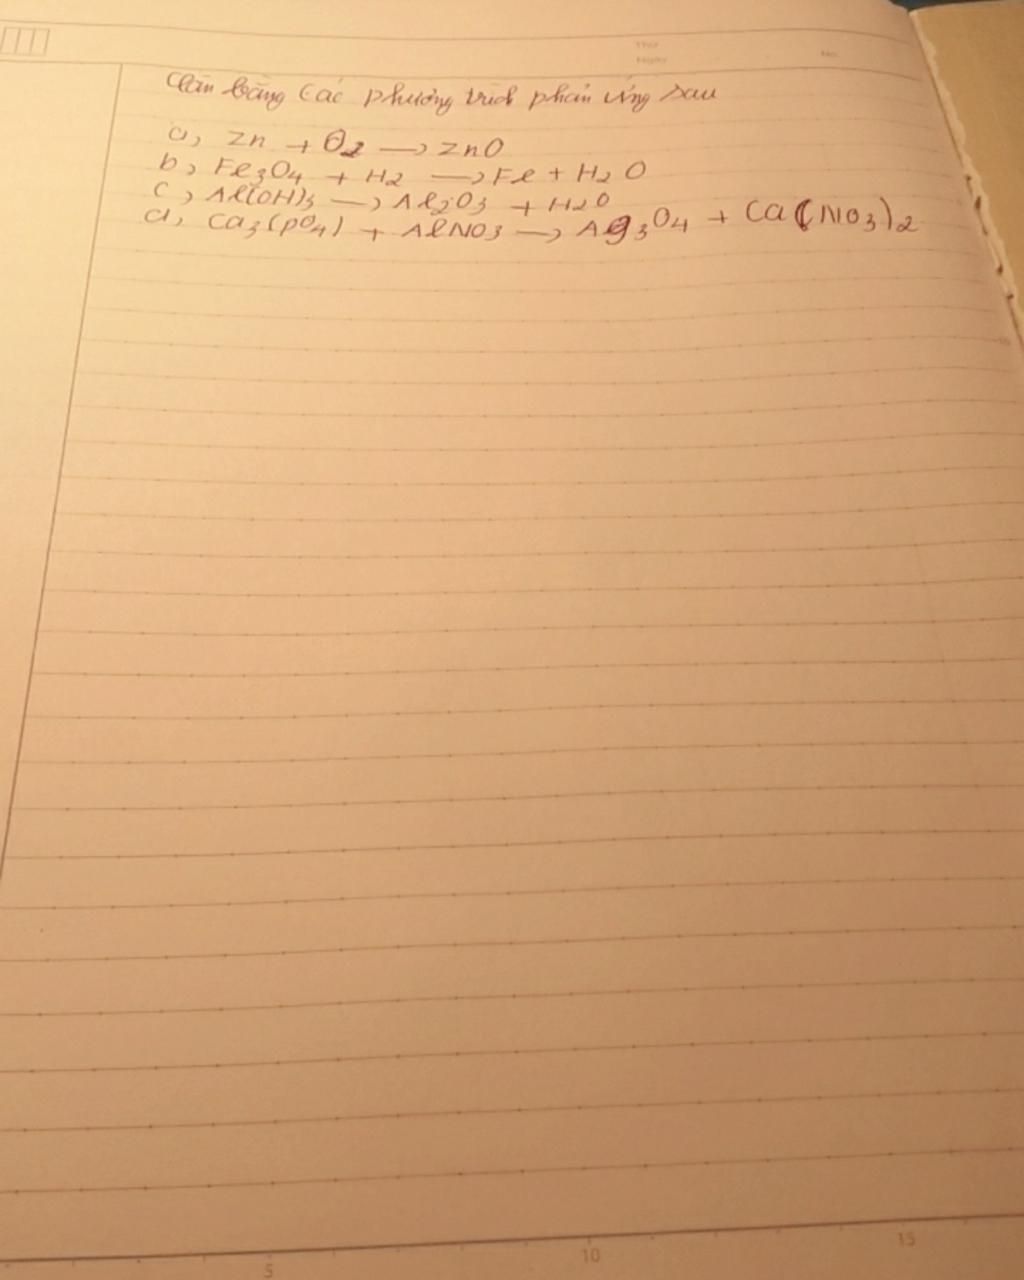 Thứ
Ngày
No.
Cân bằng các phương trình phản ứng sau
a, Zn + O2 → ZnO
b, Fe3O4 + H2 → Fe + H2O
c, Al(OH)3 → Al2O3 + H2O
d, Ca3(PO4) + AlNO3 → Ag3O4 + Ca(NO3)2
10
5
10
15